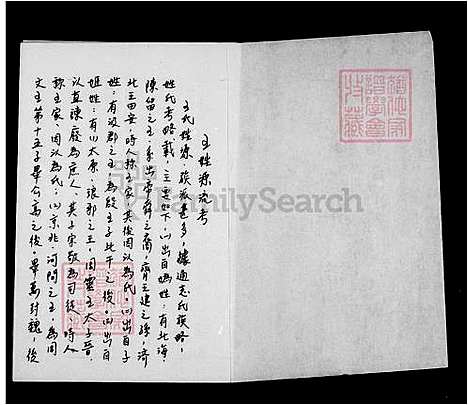 王姓源流考
王氏姓源,族派意多,據通志氏族略,
姓氏考略載,主要如下:㈠出自媯姓:有北海
陳留之王,系出帝舜之裔,齊王建之孫,濟
北王田安,時人称王家,其後因以為氏。㈡出自子
姓:有汲郡之王,為殷王子比干之後。㈢出自
姬姓:有⑴太原、琅邪之王,周靈王太子晉,
以直諫廢為庶人,其子宗敬為司徒,時人
称王家,因以為氏。⑵京兆、河間之王,為周
文王第十五子畢公高之後,畢萬封魏,後
FamilySearch
譜學會
收藏